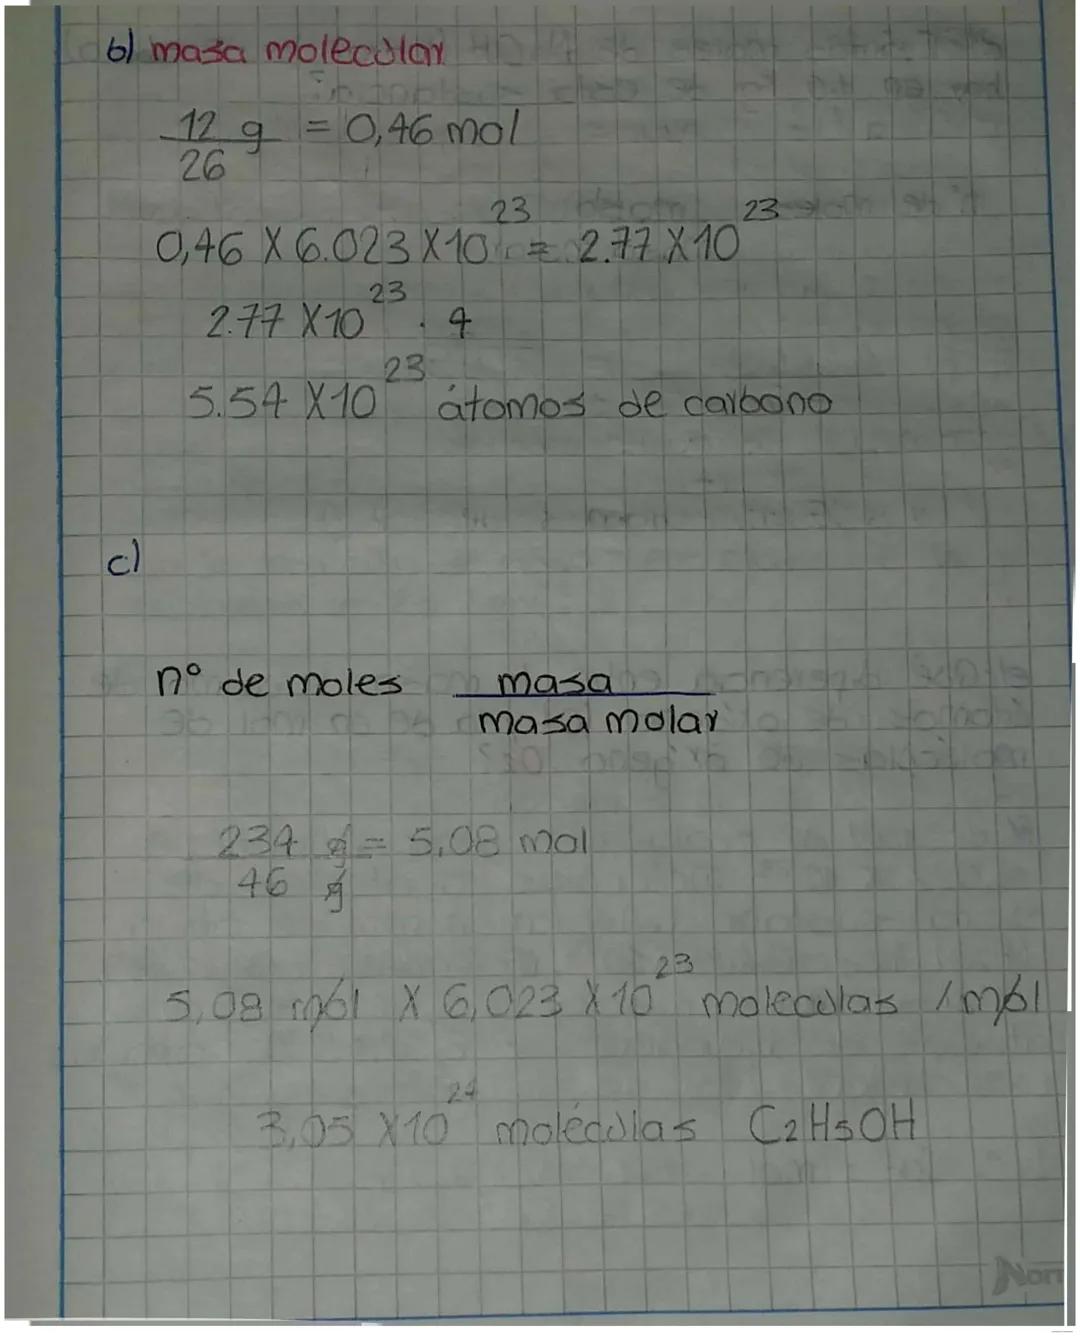 b) masa molecular
12 g = 0,46 mol
26
0,46 X 6.023 X 10²³ = 2.77 X 10²³
2.77 X 10²³ . 4
5.54 X 10²³ átomos de carbono
c)
n° de moles masa
masa molar
234 g = 5,08 mol
46 g
5,08 mol X 6,023 X 10²³ moleculas / mol
3,05 X 10²⁴ moléculas C2H5OH
Nor